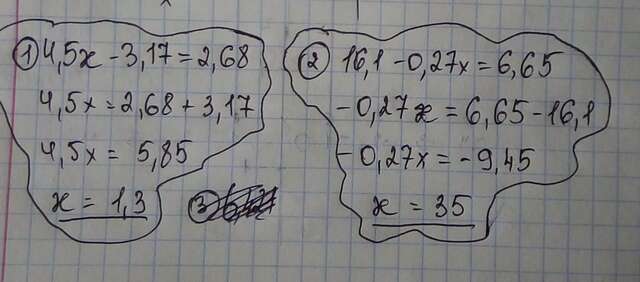 ① 4,5x - 3,17 = 2,68
4,5x = 2,68 + 3,17
4,5x = 5,85
x = 1,3
② 16,1 - 0,27x = 6,65
- 0,27x = 6,65 - 16,1
- 0,27x = - 9,45
x = 35
③